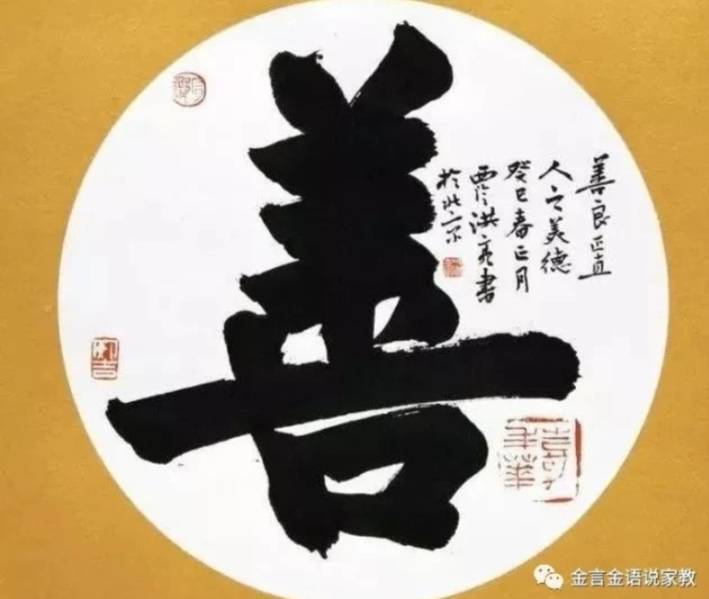 善
善良正直
人之美德
癸巳春正月
西泠洪亮書
於北京
金言金语说家教